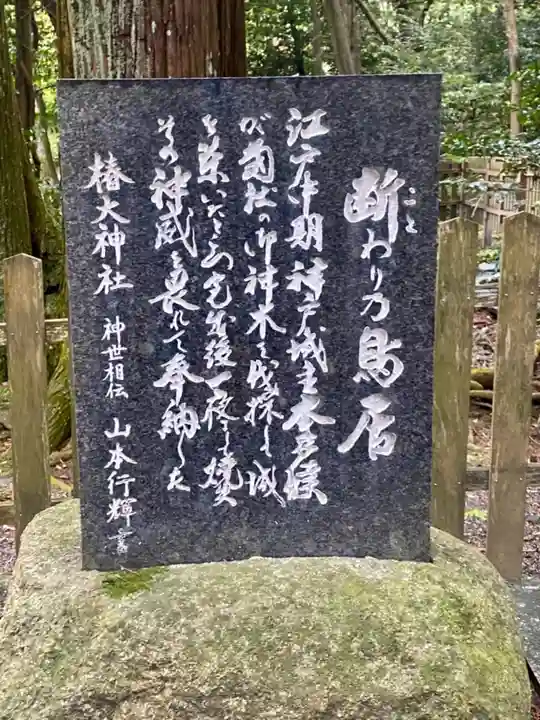 断わりの鳥居
こと
江戸中期神戸城主本多候
が当社の御神木を伐採し城
を築いたところ完成後一夜にして焼失
その神威を畏れて奉納した
椿大神社 神世相伝 山本行輝 書